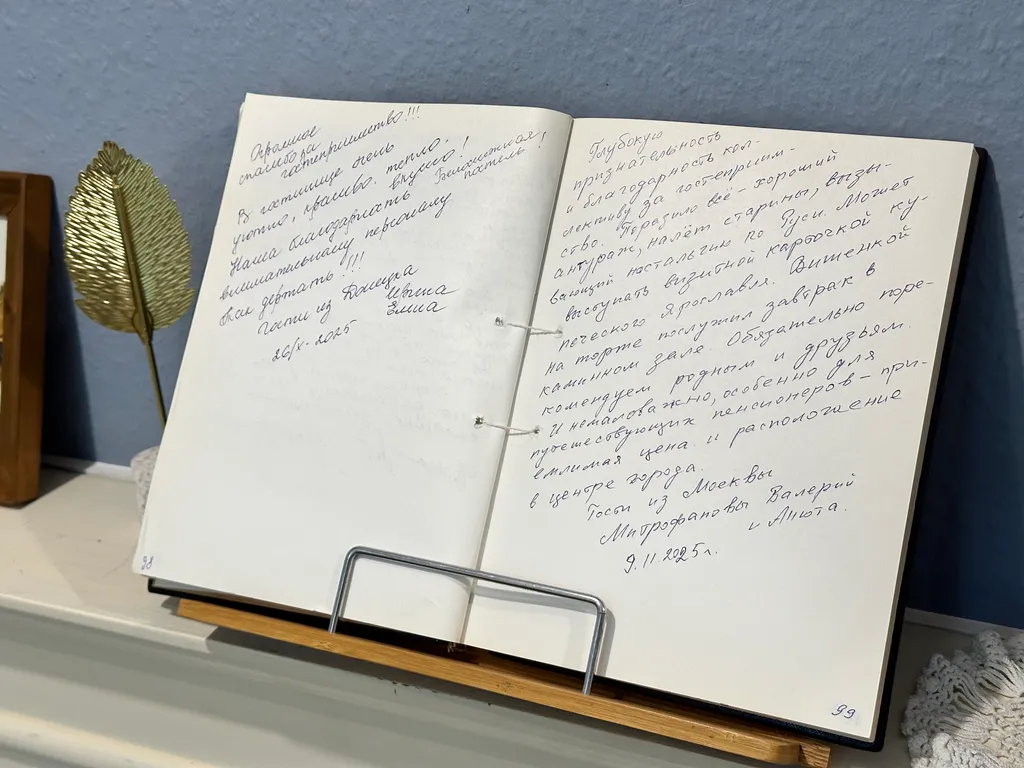 Огромное
спасибо за
гостеприимство!!!
В гостинице очень
уютно, красиво, тепло,
вкусно! Белоснежная
постель!
Наша благодарность
внимательному персоналу.
Так держать!!!
Гости из
Ирина
Елена
26/X-2025
98
Глубокую
признательность
и благодарность кол-
лективу за гостеприим-
ство. Поразило всё - хороший
антураж, налёт старины, вызы-
вающий настальгию по Руси. Может
выступать визитной карточкой ку-
печеского Ярославля. Вишенкой
на торте послужил завтрак в
каминном зале. Обязательно поре-
комендуем родным и друзьям.
И немаловажно, особенно для
путешествующих пенсионеров - при-
емлимая цена и расположение
в центре города.
Гости из Москвы
Митрофановы Валерий
и Анюта.
9.11.2025г.
99